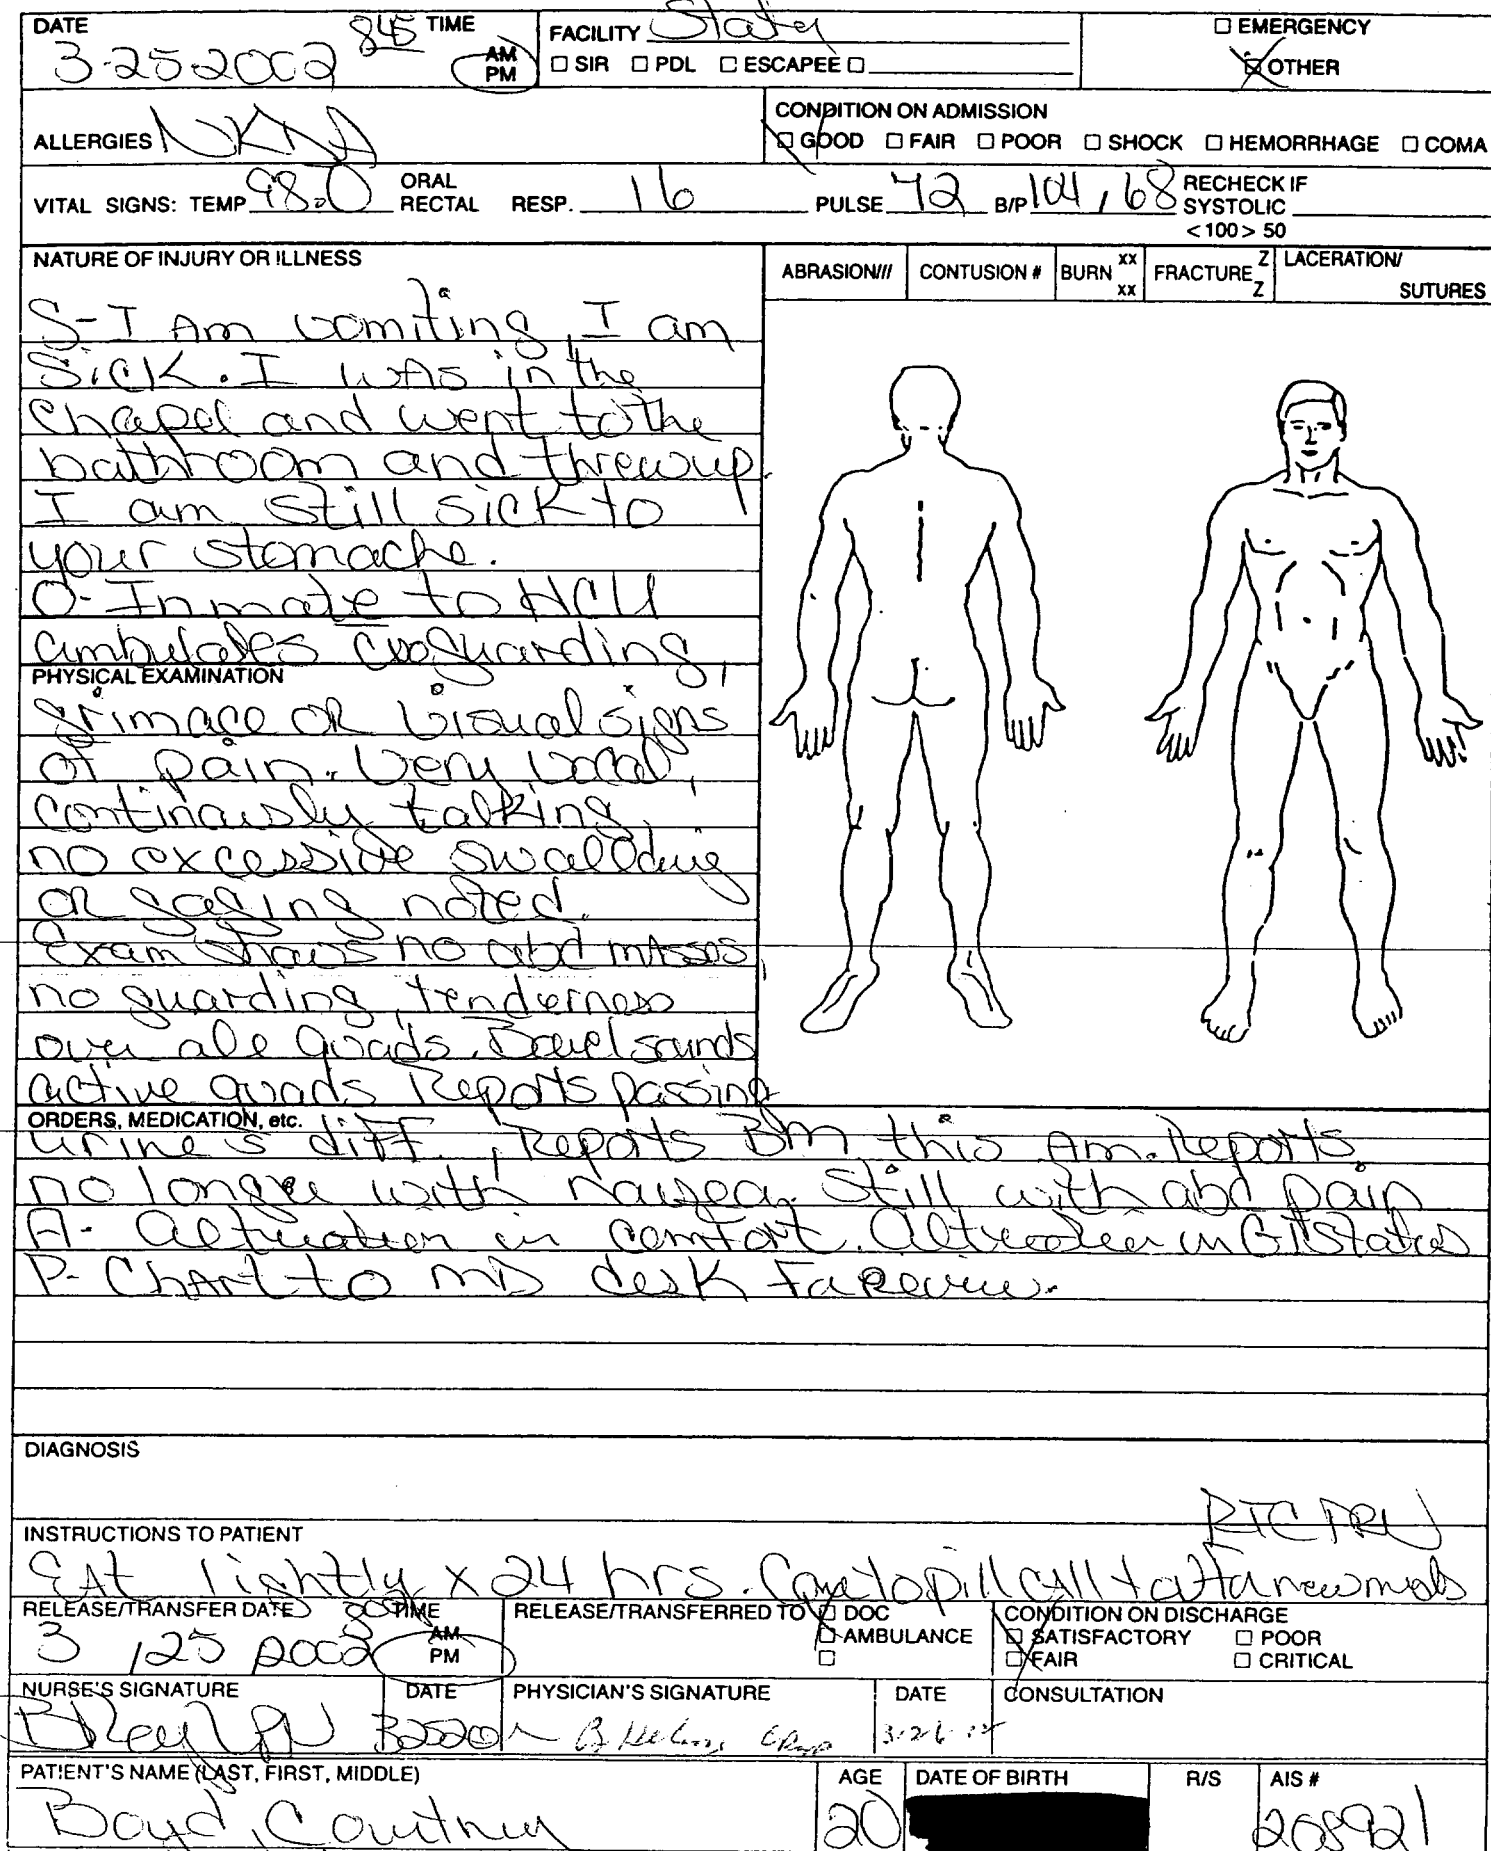 DATE 3-25-2002 845 TIME AM PM
FACILITY
□ SIR □ PDL □ ESCAPEE □
□ EMERGENCY
□ OTHER
ALLERGIES NKDA
CONDITION ON ADMISSION
□ GOOD □ FAIR □ POOR □ SHOCK □ HEMORRHAGE □ COMA
VITAL SIGNS: TEMP 98.0 ORAL RECTAL RESP. 16 PULSE 72 B/P 104 / 68 RECHECK IF SYSTOLIC <100> 50
NATURE OF INJURY OR ILLNESS
ABRASION/// CONTUSION # BURN xx xx FRACTURE Z Z LACERATION/ SUTURES
S- I Am vomiting, I am
sick. I was in the
chapel and went to the
bathroom and threw up.
I am still sick to
your stomache.
O- Inmate to HCU
ambulates guarding,
PHYSICAL EXAMINATION
grimace or visual signs
of pain. Very vocal,
continously talking,
no excessive swallowing
or gaging noted.
Exam shows no abd masses,
no guarding, tenderness
over all quads. Bowel sounds
active quads Reports passing
ORDERS, MEDICATION, etc.
urine s diff., Reports BM this Am. Reports
no longer with nausea. Still with abd pain
A- Alteration in comfort. Alteration in GI Status
P- Chart to MD desk for review.
DIAGNOSIS
RTC PRN
INSTRUCTIONS TO PATIENT
Eat lightly x 24 hrs. to pill call new meds
RELEASE/TRANSFER DATE TIME AM PM
3 / 25 2002
RELEASE/TRANSFERRED TO □ DOC
□ AMBULANCE
□
CONDITION ON DISCHARGE
□ SATISFACTORY □ POOR
□ FAIR □ CRITICAL
NURSE'S SIGNATURE DATE PHYSICIAN'S SIGNATURE DATE CONSULTATION
LPN 3252002 3-26-02
PATIENT'S NAME (LAST, FIRST, MIDDLE) AGE DATE OF BIRTH R/S AIS #
Boyd, Courtney 20 208921